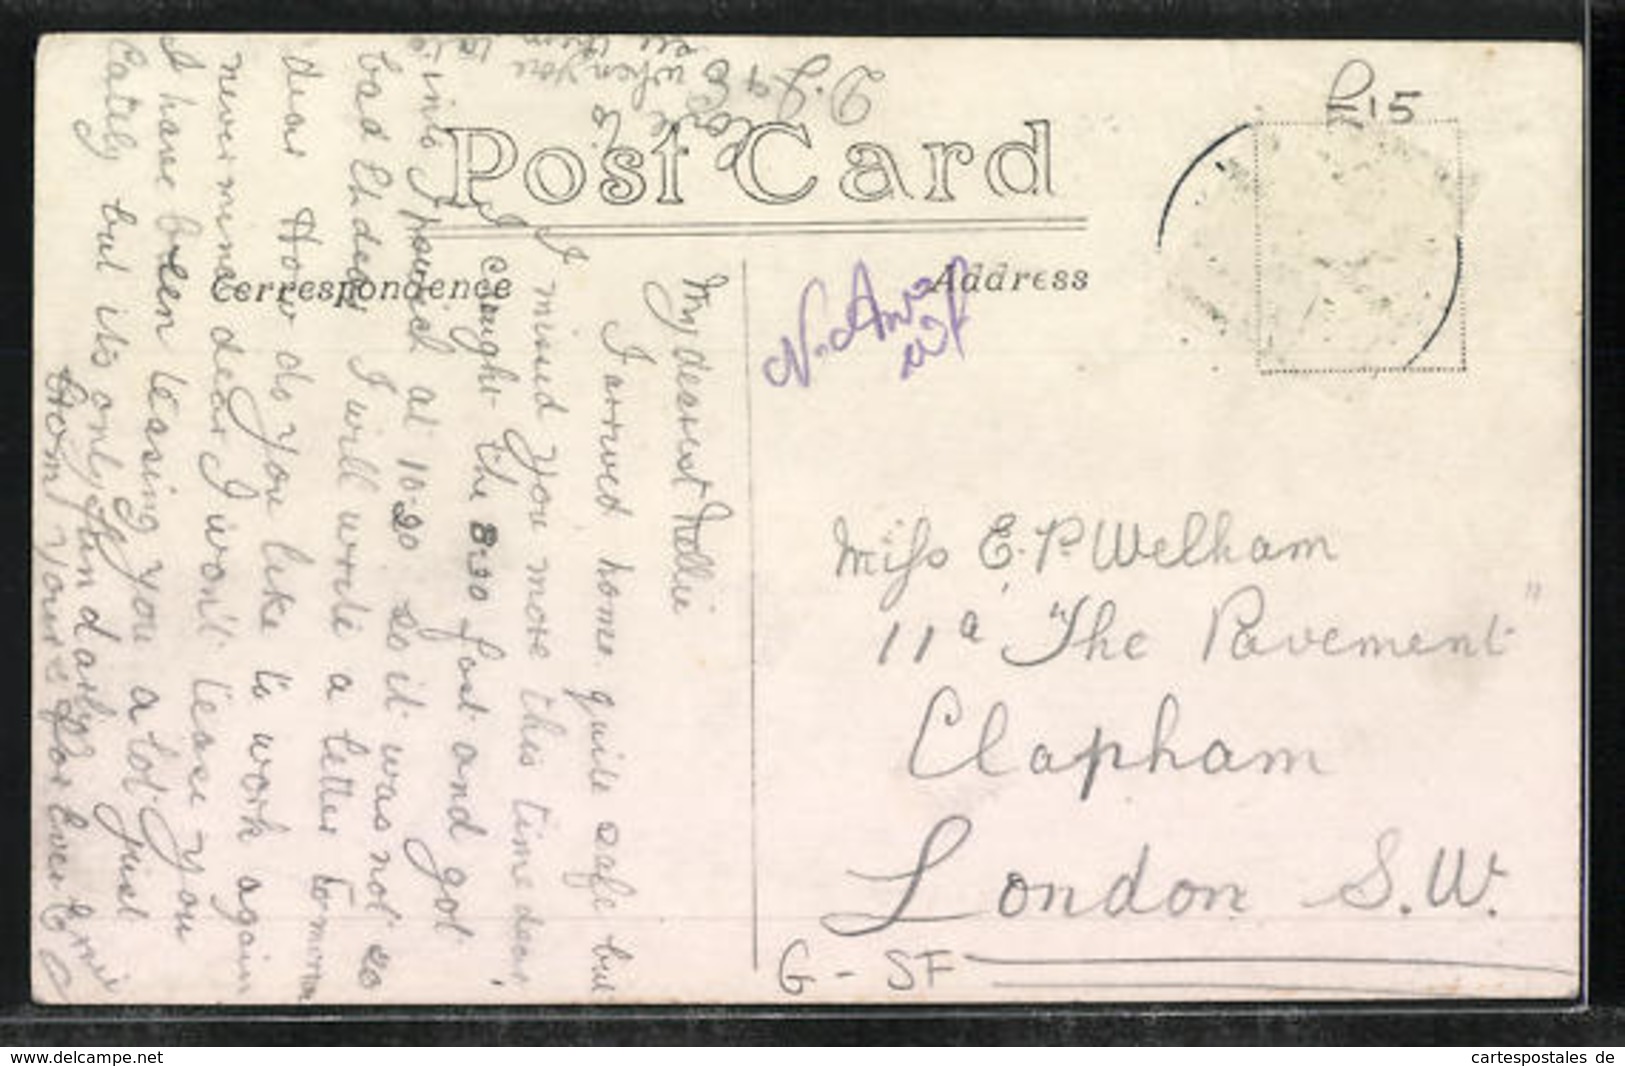 Post Card
Correspondence
Address
My dearest Nellie
I arrived home quite safe but
I missed you more this time dear,
I caught the 8:30 fast and got
into Ipswich at 10-20 so it was not so
bad Eh dear I will write a letter tomorrow
dear How do you like to work again
never mind dear I won't tease you
I have been teasing you a lot just
lately but its only fun darling
from yours For Ever Ernie
when you
see them
P 15
Miss E. P. Welham
11a "The Pavement"
Clapham
London S.W.
G - SF
www.delcampe.net
cartespostales de